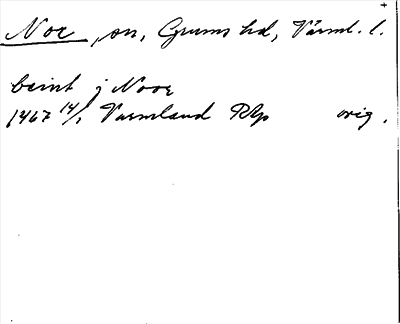 Nor, sn, Grums hd, Värml. l.
beint j Noor
1467 14/1 Varmland RAp orig.